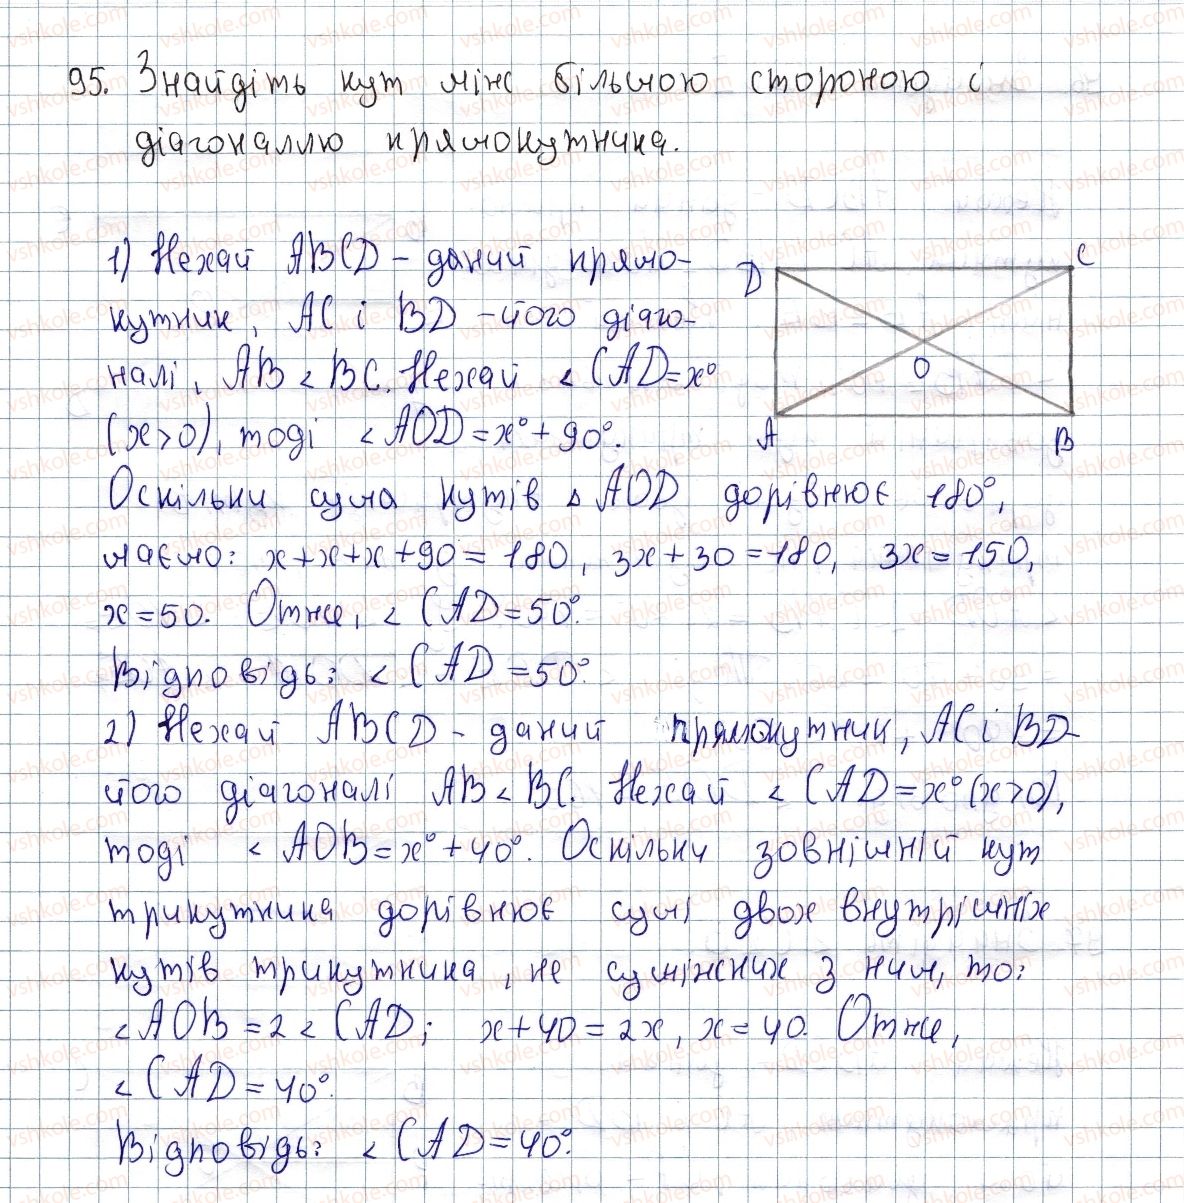 95. Знайдіть кут між більшою стороною і
діагоналлю прямокутника.
1) Нехай ABCD – даний прямо-
кутник, AC і BD – його діаго-
налі, AB < BC. Нехай < CAD = x°
(x>0), тоді < AOD = x° + 90°.
Оскільки сума кутів △ AOD дорівнює 180°,
маємо: x + x + x + 90 = 180, 3x + 30 = 180, 3x = 150,
x = 50. Отже, < CAD = 50°.
Відповідь: < CAD = 50°.
D
C
O
A
B
2) Нехай ABCD – даний прямокутник, AC і BD –
його діагоналі AB < BC. Нехай < CAD = x° (x>0),
тоді < AOB = x° + 40°. Оскільки зовнішній кут
трикутника дорівнює сумі двох внутрішніх
кутів трикутника, не суміжних з ним, то:
< AOB = 2 < CAD; x + 40 = 2x, x = 40. Отже,
< CAD = 40°.
Відповідь: < CAD = 40°.
vshkole.com